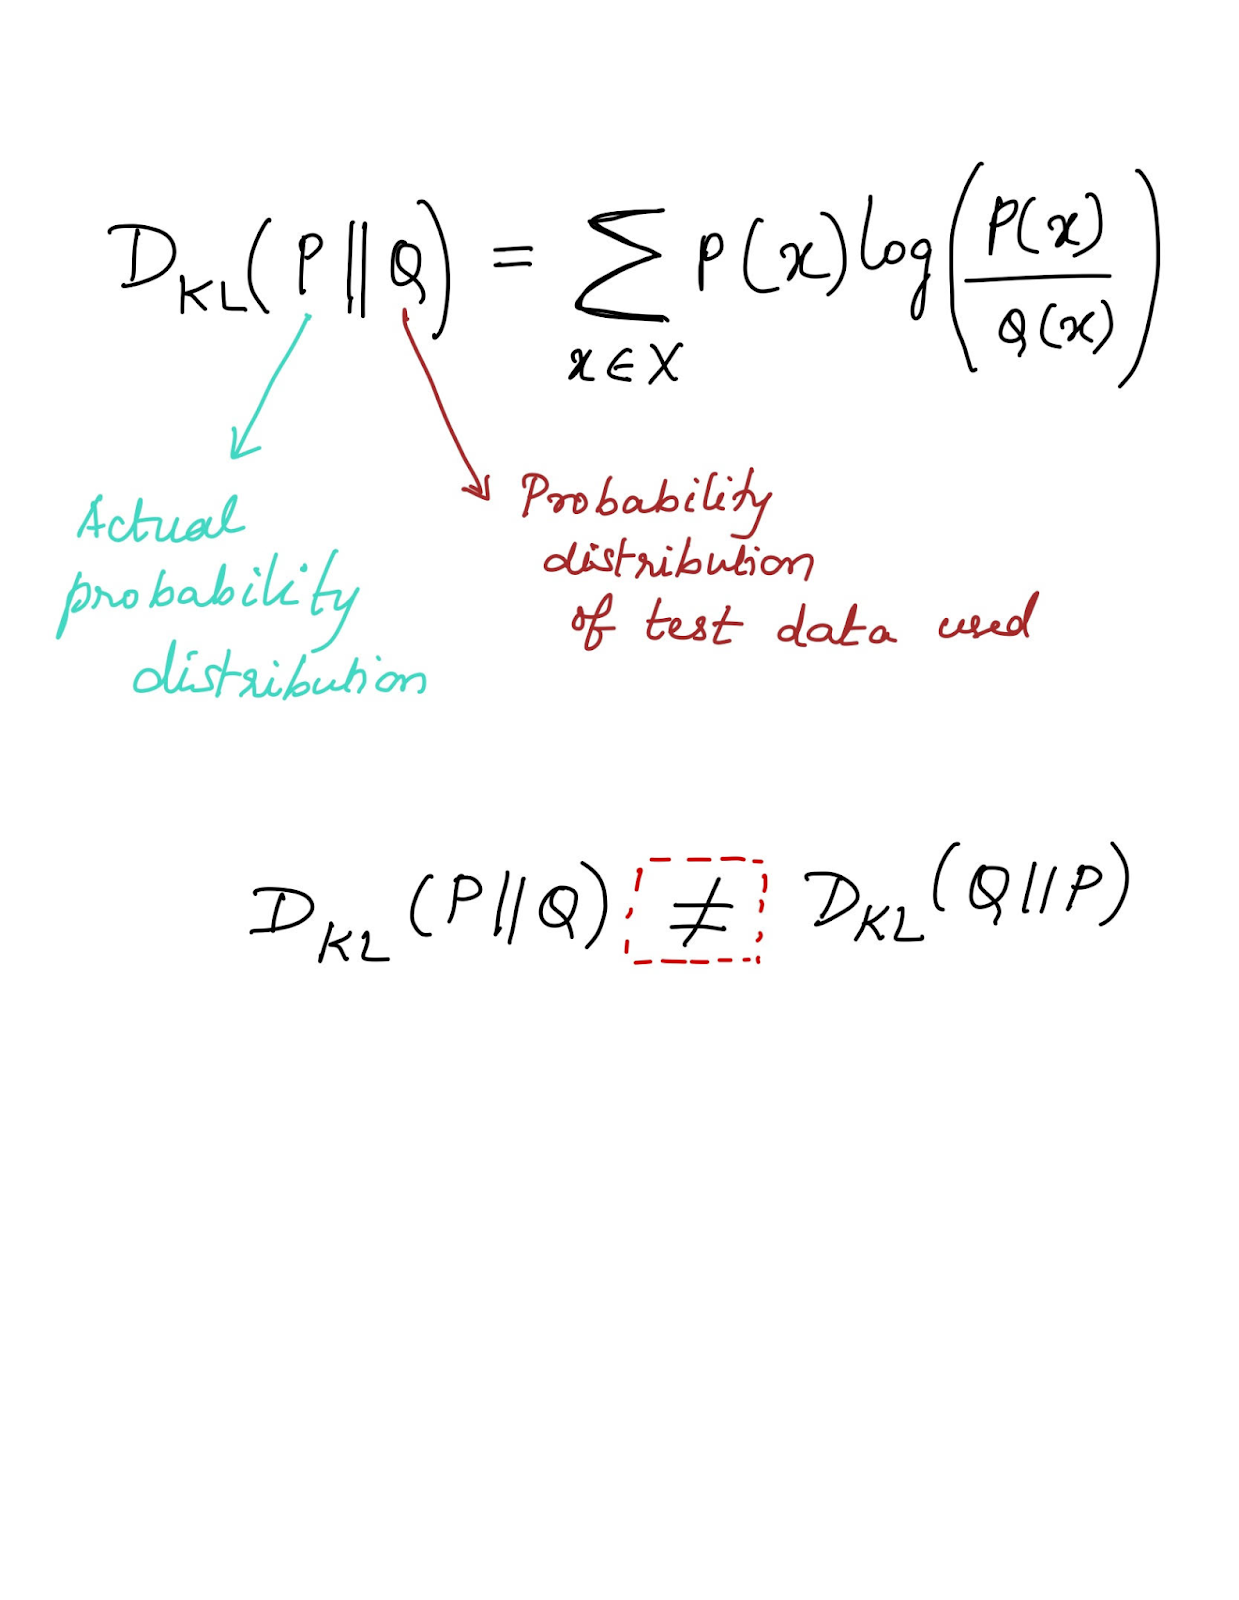 D_KL(P||Q) = ∑_{x∈X} P(x) log(P(x)/Q(x))
Actual
probability
distribution
Probability
distribution
of test data used
D_KL(P||Q) ≠ D_KL(Q||P)